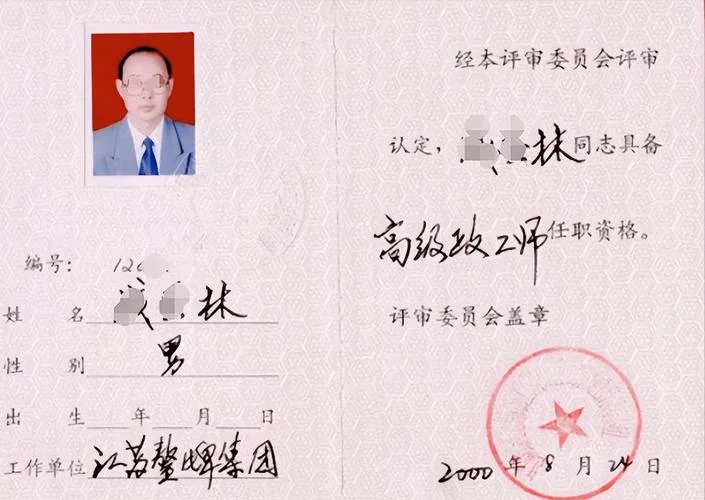 编号： 12
姓 名 林
性 别 男
出 生 年 月 日
工作单位 江苏 牌集团
经本评审委员会评审
认定， 林 同志具备
高级政工师 任职资格。
评审委员会盖章
2000 年 8 月 24 日